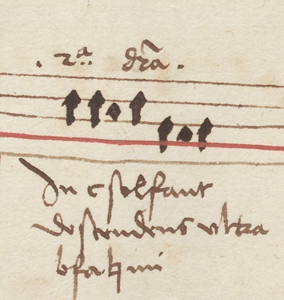 . 2ª. dr̄a .
In c solfaut
descendens ultra
bfa♮mi